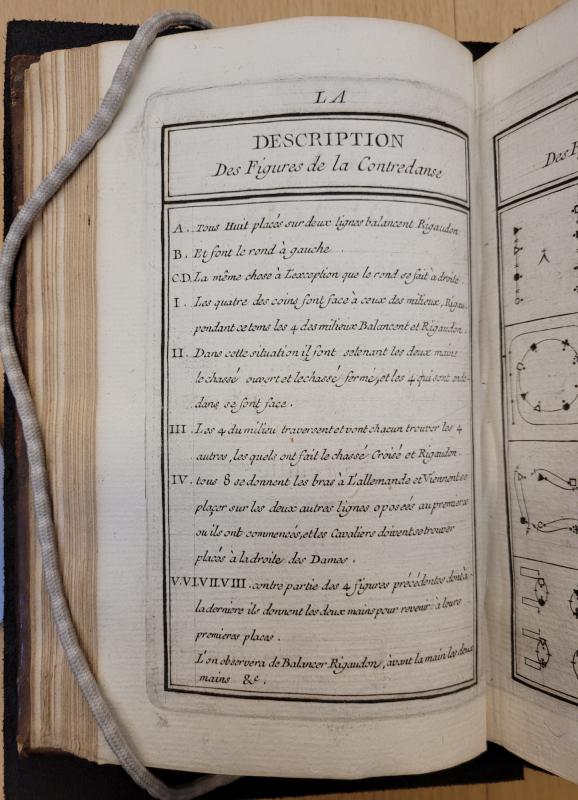 LA
DESCRIPTION
Des Figures de la Contredanse
A. Tous Huit placés sur deux lignes balancent Rigaudon
B. Et font le rond à gauche.
C.D. La même chose à L'exception que le rond se fait à droite.
I. Les quatre des coins font face à ceux des milieux, Rigau.
pendant ce tems les 4 des milieux Balancent et Rigaudon.
II. Dans cette situation il font se tenant les deux mains
le chassé ouvert et le chassé fermé, et les 4 qui sont en de-
dans se font face.
III. Les 4 du milieu traversent et vont chacun trouver les 4
autres, les quels ont fait le chassé Croisé et Rigaudon.
IV. tous 8 se donnent les bras à L'allemande et Viennent se
plaçer sur les deux autres lignes oposeés au premieres
ou ils ont commencés, et les Cavaliers doivent se trouver
placés à la droite des Dames.
V.VI.VII.VIII. contre partie des 4 figures précédentes dont à
la derniere ils donnent les deux mains pour revenir à leurs
premieres places.
L'on observera de Balancer Rigaudons, avant la main, les deux
mains &c.
Des F